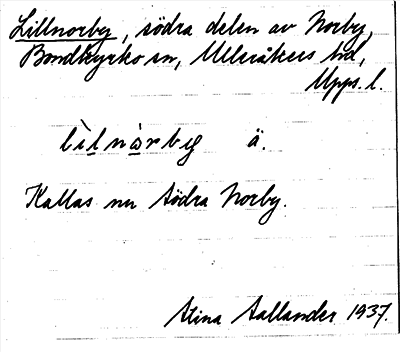 Lillnorby, södra delen av Norby,
Bondkyrko sn, Ulleråkers hd,
Upps. l.
lìlnàrby ä.
Kallas nu Södra Norby.
Stina Aallander 1937.